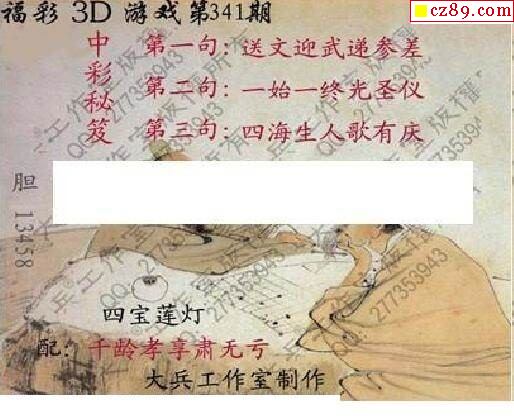 福彩 3D 游戏第341期
cz89.com
中彩秘笈
第一句：送文迎武递参差
第二句：一始一终光圣仪
第三句：四海生人歌有庆
胆 13458
四宝莲灯
配：千龄孝享肃无亏
大兵工作室制作
大兵工作室版权所有
QQ:277353943